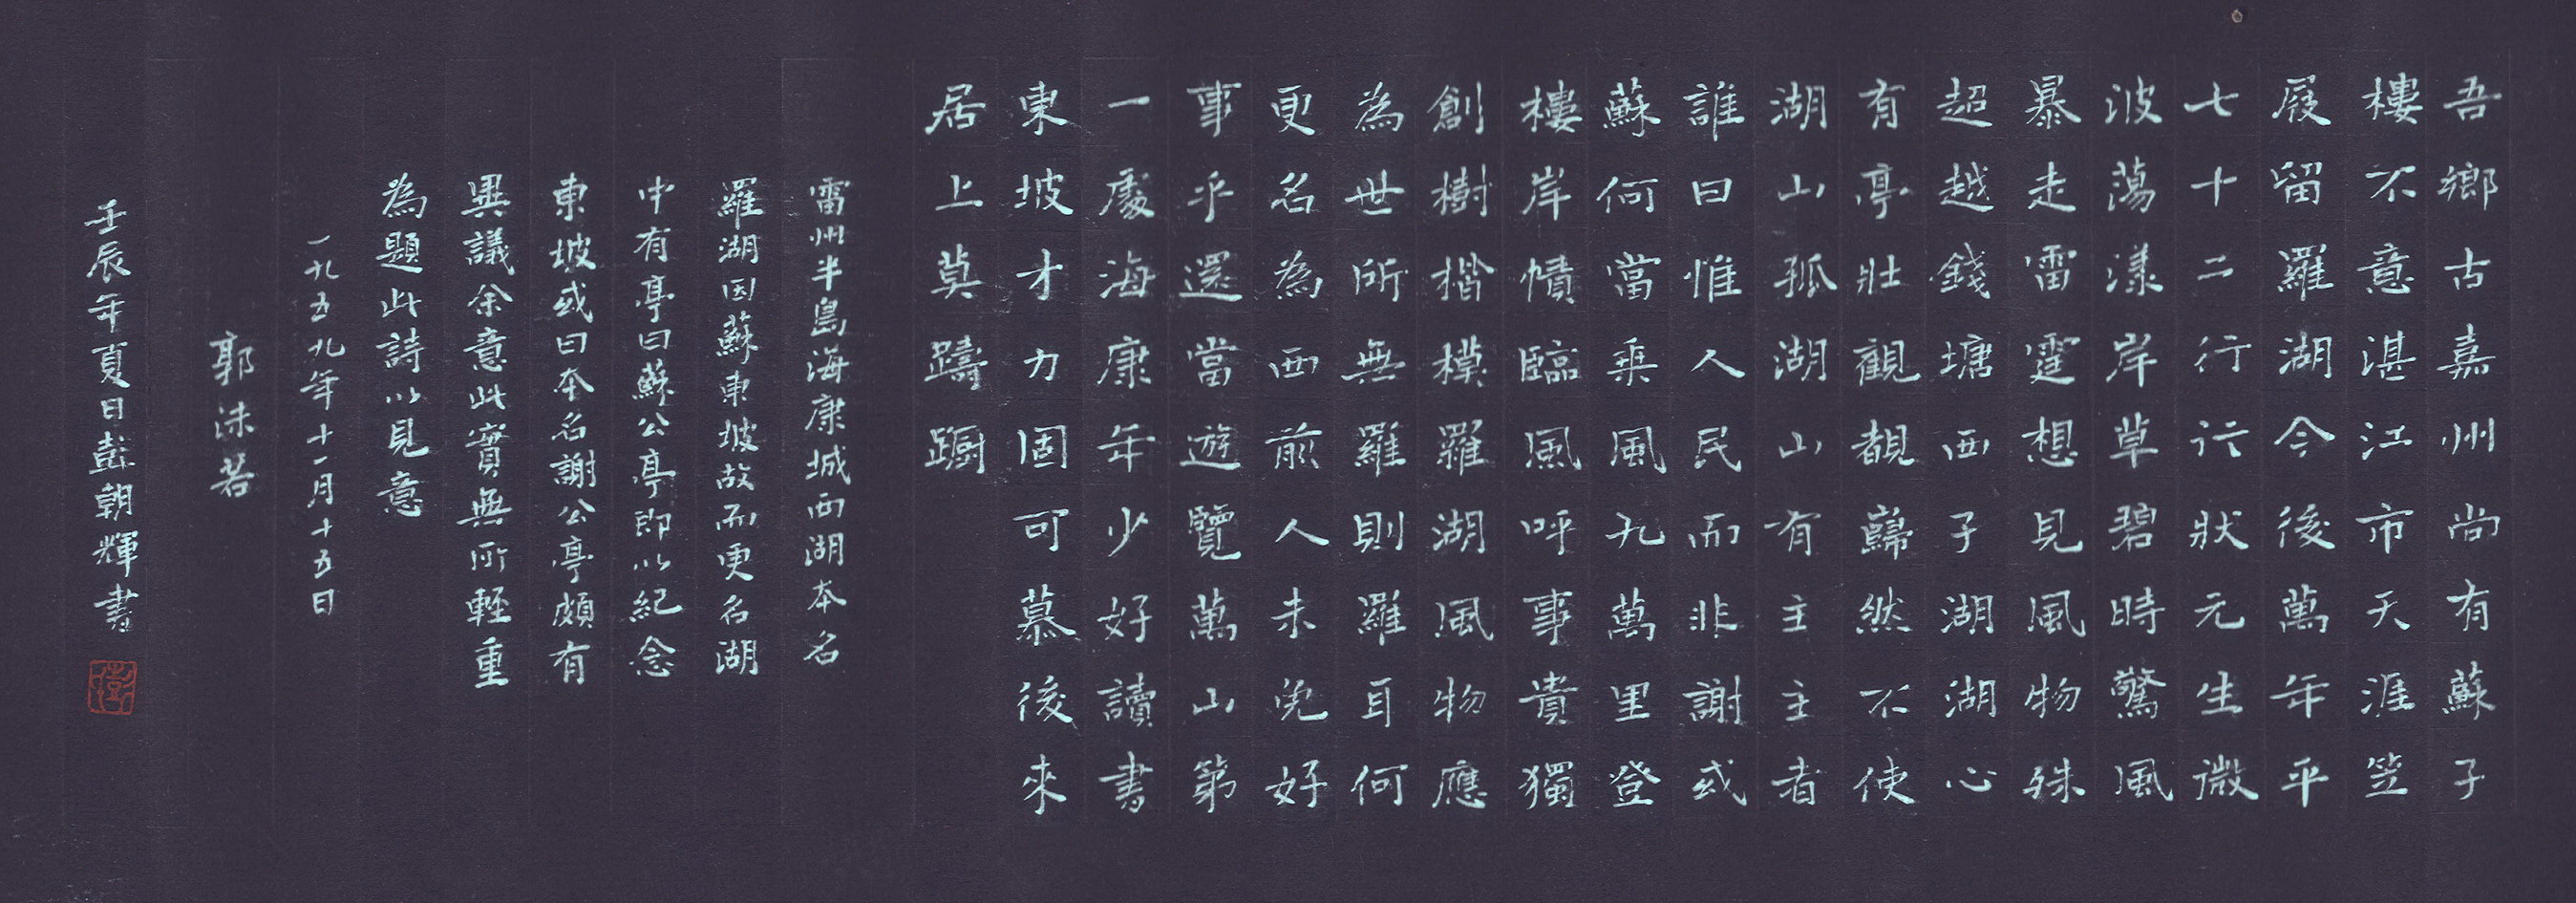 吾鄉古嘉州尚有蘇子
樓不意湛江市天涯笠
屐留羅湖今後萬年平
七十二行行狀元生微
波蕩漾岸草碧時驚風
暴走雷霆想見風物殊
超越錢塘西子湖湖心
有亭壯觀覩巋然不使
湖山孤湖山有主主者
誰曰惟人民而非謝或
蘇何當乘風九萬里登
樓岸幘臨風呼事貴獨
創樹楷模羅湖風物應
為世所無羅則羅耳何
更名為西前人未免好
事乎還當遊覽萬山第
一處海康年少好讀書
東坡才力固可慕後來
居上莫躊躕
雷州半島海康城西湖本名
羅湖因蘇東坡故而更名湖
中有亭曰蘇公亭即以紀念
東坡或曰本名謝公亭頗有
異議余意此實無所輕重
為題此詩以見意
一九五九年十一月十五日
郭沫若
壬辰年夏日彭朝輝書